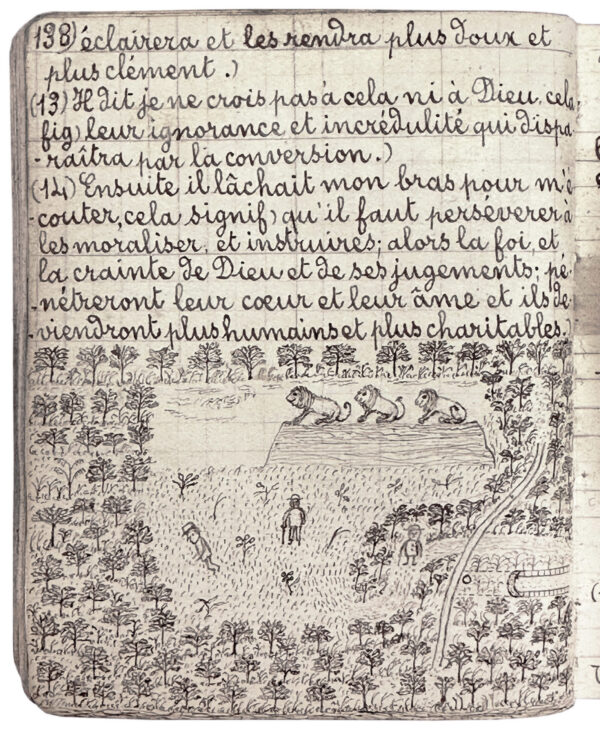 138) éclairera et les rendra plus doux et
plus clément.)
(13) Il dit je ne crois pas à cela ni à Dieu, cela
fig) leur ignorance et incrédulité qui dispa
-raîtra par la conversion.)
(14) Ensuite il lâchait mon bras pour m'é
-couter, cela signif) qu'il faut persévérer à
les moraliser, et instruires; alors la foi, et
la crainte de Dieu et de ses jugements; pé-
-nétreront leur cœur et leur âme et ils de-
-viendront plus humains et plus charitables.)